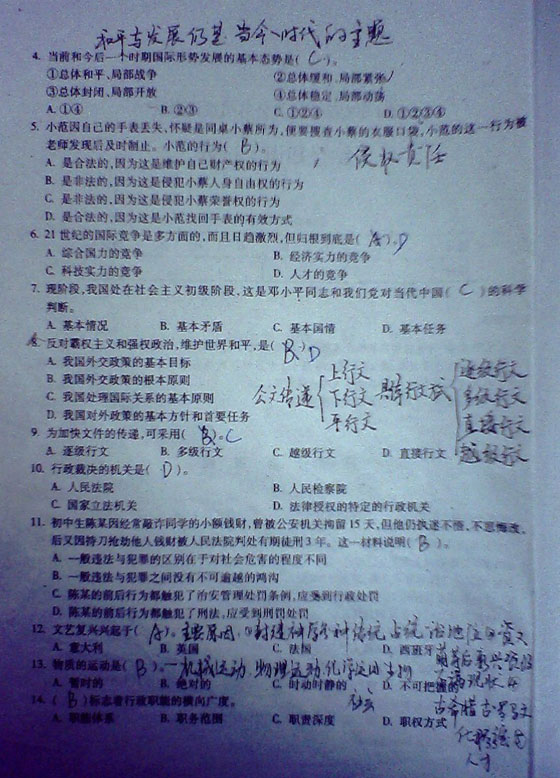 和平与发展仍是当今时代的主题
4. 当前和今后一个时期国际形势发展的基本态势是( C )。
①总体和平、局部战争 ②总体缓和、局部紧张
③总体封闭、局部开放 ④总体稳定、局部动荡
A. ①④ B. ②③ C. ①②④ D. ①②③④
5. 小范因自己的手表丢失,怀疑是同桌小蔡所为,便要搜查小蔡的衣服口袋,小范的这一行为被
老师发现后及时制止。小范的行为( B )。 侵权责任
A. 是合法的,因为这是维护自己财产权的行为
B. 是非法的,因为是侵犯小蔡人身自由权的行为
C. 是非法的,因为是侵犯小蔡荣誉权的行为
D. 是合法的,因为这是小范找回手表的有效方式
6. 21 世纪的国际竞争是多方面的,而且日趋激烈,但归根到底是( A )。D
A. 综合国力的竞争 B. 经济实力的竞争
C. 科技实力的竞争 D. 人才的竞争
7. 现阶段,我国处在社会主义初级阶段,这是邓小平同志和我们党对当代中国( C )的科学
判断。
A. 基本情况 B. 基本矛盾 C. 基本国情 D. 基本任务
8. 反对霸权主义和强权政治,维护世界和平,是( B )D
A. 我国外交政策的基本目标
B. 我国外交政策的根本原则
C. 我国处理国际关系的基本原则
D. 我国对外政策的基本方针和首要任务
公文传递 上行文 下行文 平行文 具体行文式 逐级行文 多级行文 直接行文 越级行文
9. 为加快文件的传递,可采用( B )。C
A. 逐级行文 B. 多级行文 C. 越级行文 D. 直接行文
10. 行政裁决的机关是( D )。
A. 人民法院 B. 人民检察院
C. 国家立法机关 D. 法律授权的特定的行政机关
11. 初中生陈某因经常敲诈同学的小额钱财,曾被公安机关拘留 15 天,但他仍执迷不悟、不思悔改,
后又因持刀抢劫他人钱财被人民法院判处有期徒刑 3 年。这一材料说明( B )。
A. 一般违法与犯罪的区别在于对社会危害的程度不同
B. 一般违法与犯罪之间没有不可逾越的鸿沟
C. 陈某的前后行为都触犯了治安管理处罚条例,应受到行政处罚
D. 陈某的前后行为都触犯了刑法,应受到刑罚处罚
12. 文艺复兴兴起于( A )。主要原因:
A. 意大利 B. 英国 C. 法国 D. 西班牙
13. 物质的运动是( B )。机械运动、物理运动、化学运动、生物
社会
A. 暂时的 B. 绝对的 C. 时动时静的 D. 不可把握的
14. ( B )标志着行政职能的横向广度。
A. 职能体系 B. 职务范围 C. 职责深度 D. 职权方式